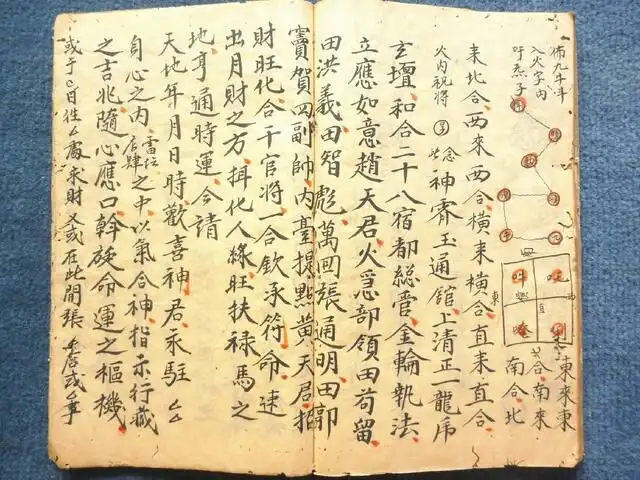 佈九斗斗
入火字內
吁炁子
東
西
東來東
合南來
南合北
來北合西來西合橫來橫合直來直合
火內祝將
念
神霄玉通館上清正一龍虎
玄壇和合二十八宿都総管金輪執法
立應如意趙天君火急部領田苟留
田洪義田智彪萬回張通明田卸
竇賀四副帥內臺提點黃天居招
財旺化合千官將一合欽承符命速
出月財之方揖化人緣旺扶祿馬之
地亨通時運今請
天地年月日時歡喜神君永駐
自心之內
雷坛
店肆
之中以氣合神指示行藏
之吉兆隨心應口斡旋命運之樞機
或于百姓處求財又或在此開張店或事